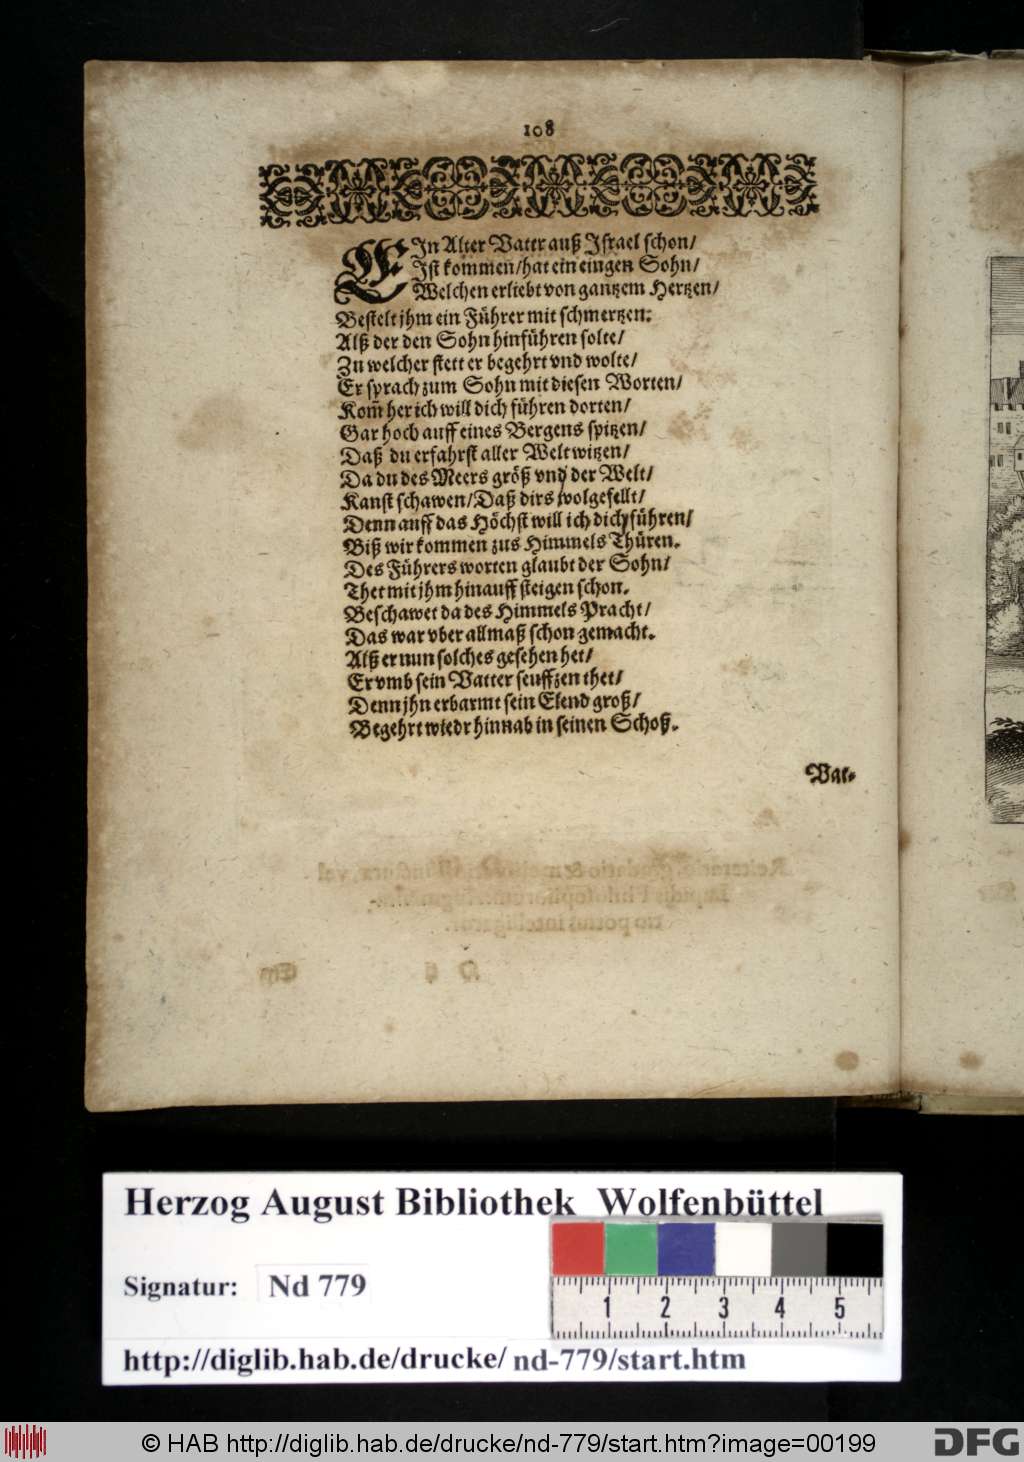 108
EIn Alter Vatter auß Israel schon/
Ist kommen/hat ein eingen Sohn/
Welchen erliebt von gantzem Hertzen/
Bestelt jhm ein Führer mit schmertzen:
Alß der den Sohn hinführen solte/
Zu welcher stett er begehrt vnd wolte/
Er sprach zum Sohn mit diesen Worten/
Kom̃ her ich will dich führen dorten/
Gar hoch auff eines Bergens spitzen/
Daß du erfahrst aller Welt witzen/
Da du des Meers größ vnd der Welt/
Kanst schawen/Daß dirs wolgefellt/
Denn auff das Höchst will ich dich führen/
Biß wir kommen zus Himmels Thüren.
Des Führers worten glaubt der Sohn/
Thet mit jhm hinauff steigen schon.
Beschawet da des Himmels Pracht/
Das war vber allmaß schon gemacht.
Alß er nun solches gesehen het/
Er vmb sein Vatter seuffzen thet/
Denn jhn erbarmt sein Elend groß/
Begehrt wiedr hinnab in seinen Schoß.
Vat-
Herzog August Bibliothek Wolfenbüttel
Signatur: Nd 779
1 2 3 4 5
http://diglib.hab.de/drucke/ nd-779/start.htm
© HAB http://diglib.hab.de/drucke/nd-779/start.htm?image=00199
DFG